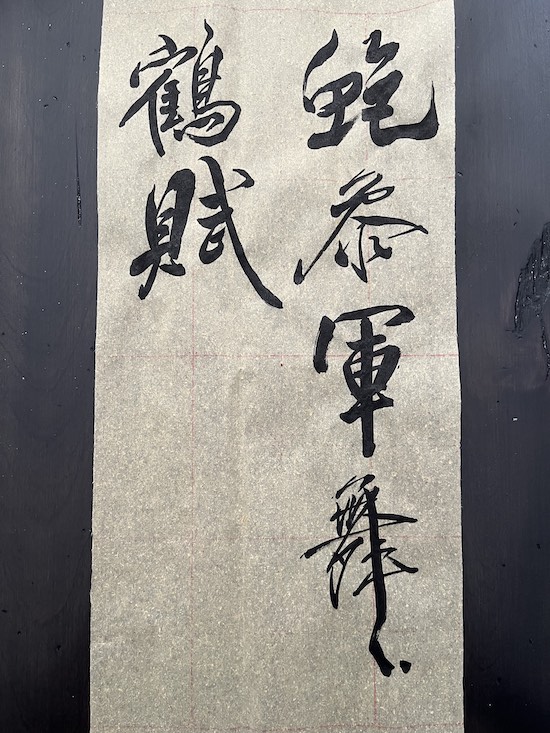 鮑叅軍舞
鶴賦